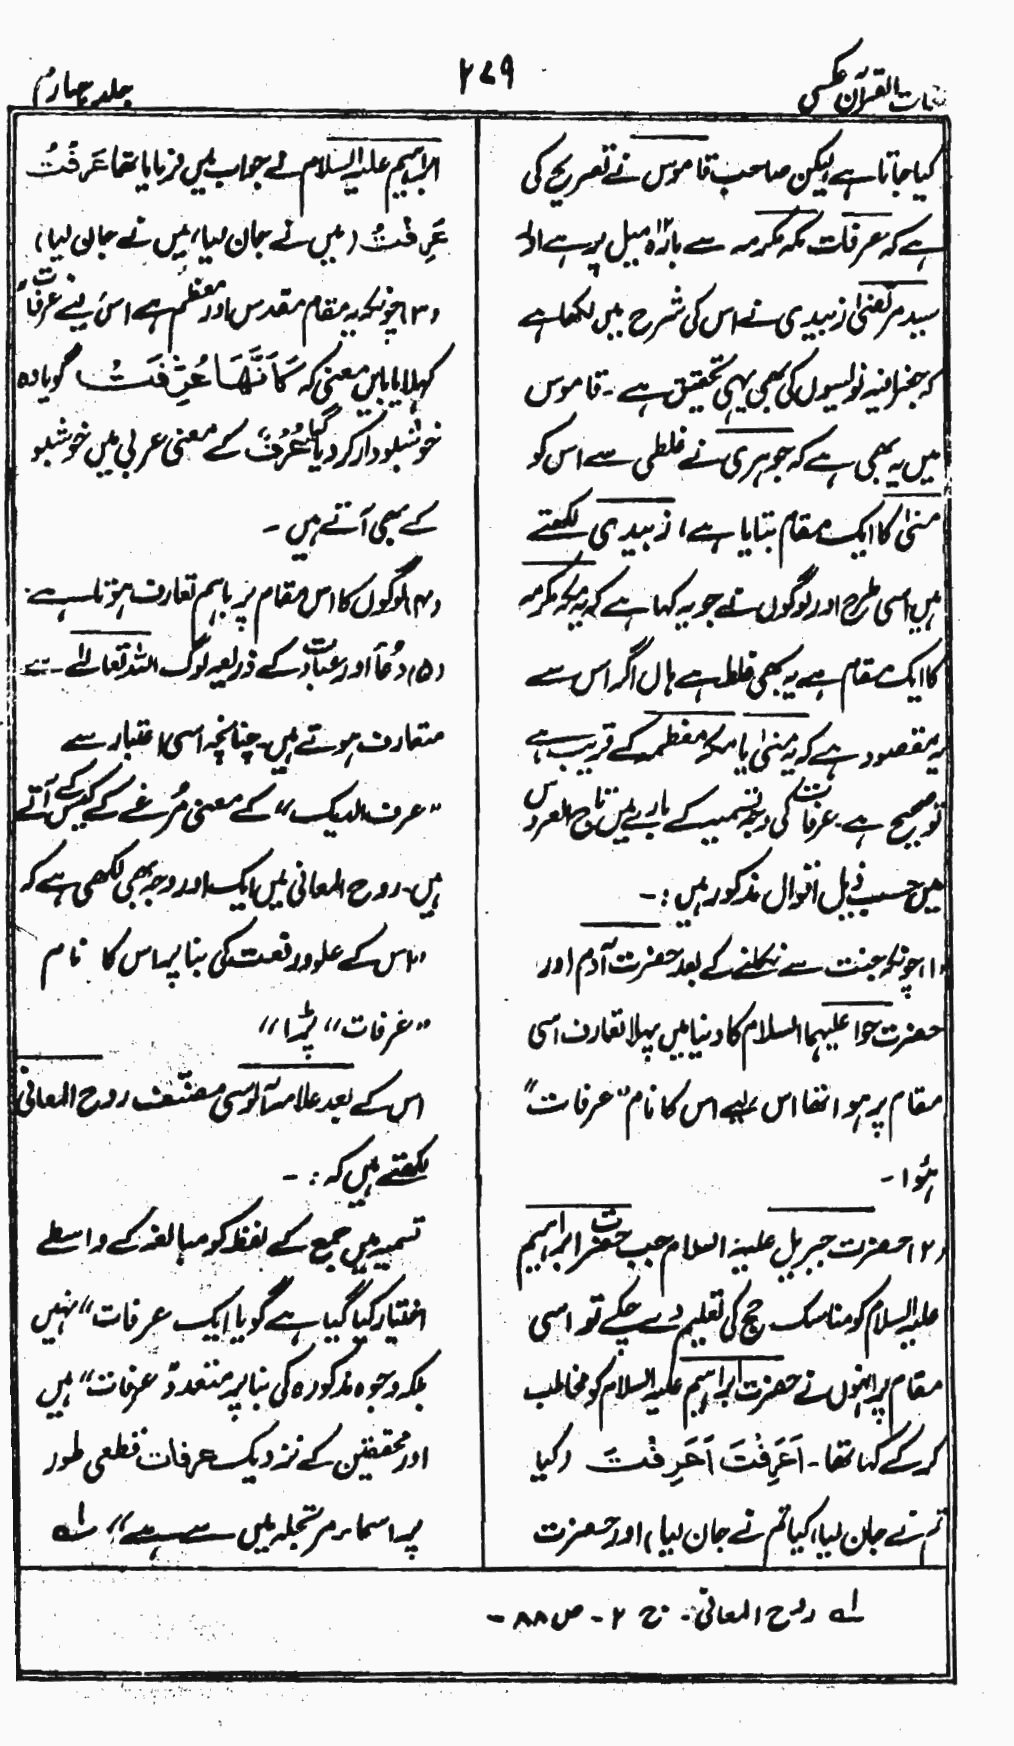 لغات القرآن عکسی
۲۷۹
جلد چہارم
کیا جاتا ہے لیکن صاحب قاموس نے تصریح کی
ہے کہ عرفات مکہ مکرمہ سے بارہ ۱۲ میل پر ہے اور
سید مرتضیٰ زبیدی نے اس کی شرح میں لکھا ہے
کہ جغرافیہ نویسوں کی بھی یہی تحقیق ہے - قاموس
میں یہ بھی ہے کہ جوہری نے غلطی سے اس کو
منیٰ کا ایک مقام بتایا ہے، زبیدی لکھتے
ہیں اسی طرح اور لوگوں نے جو یہ کہا ہے کہ یہ مکہ مکرمہ
کا ایک مقام ہے یہ بھی غلط ہے ہاں اگر اس سے
یہ مقصود ہے کہ یہ منیٰ یا مکہ معظمہ کے قریب ہے
تو صحیح ہے۔ عرفات کی وجہ تسمیہ کے بارے میں تاج العروس
میں حسب ذیل اقوال مذکور ہیں :-
(۱) چونکہ جنت سے نکلنے کے بعد حضرت آدم اور
حضرت حوا علیہما السلام کا دنیا میں پہلا تعارف اسی
مقام پر ہوا تھا اس لیے اس کا نام "عرفات"
ہؤا -
(۲) حضرت جبریل علیہ السلام جب حضرت ابراہیم
علیہ السلام کو مناسک حج کی تعلیم دے چکے تو اسی
مقام پر انہوں نے حضرت ابراہیم علیہ السلام کو مخاطب
کر کے کہا تھا - اَعَرِفْتَ اَعَرِفْتَ (کیا
تم نے جان لیا، کیا تم نے جان لیا) اور حضرت
ابراہیم علیہ السلام نے جواب میں فرمایا تھا عَرَفْتُ
عَرِفْتُ (میں نے جان لیا، میں نے جان لیا)
(۳) چونکہ یہ مقام مقدس اور معظم ہے اس لیے عرفات
کہلایا بایں معنی کہ کَاَنَّھَا عُرِّفَتْ گویا وہ
خوشبودار کر دیا گیا عُرْف کے معنی عربی میں خوشبو
کے بھی آتے ہیں -
(۴) لوگوں کا اس مقام پر باہم تعارف ہوتا ہے۔
(۵) دُعا اور عبادت کے ذریعہ لوگ اللہ تعالےٰ سے
متعارف ہوتے ہیں۔ چنانچہ اسی اعتبار سے
"عرف الدیک" کے معنی مُرغے کے کیس کے آتے
ہیں۔ روح المعانی میں ایک اور وجہ بھی لکھی ہے کہ
"اس کے علو و رفعت کی بنا پر اس کا نام
"عرفات" پڑا"
اس کے بعد علامہ آلوسی مصنّف روح المعانی
لکھتے ہیں کہ :-
تسمیہ میں جمع کے لفظ کو مبالغہ کے واسطے
اختیار کیا گیا ہے گویا ایک "عرفات" نہیں
بلکہ وجوہ مذکورہ کی بنا پر متعدد "عرفات" ہیں
اور محققین کے نزدیک عرفات قطعی طور
پر اسماء مرتجلہ میں سے ہے" لہ
لہ روح المعانی - ج ۲ - ص ۸۸ -